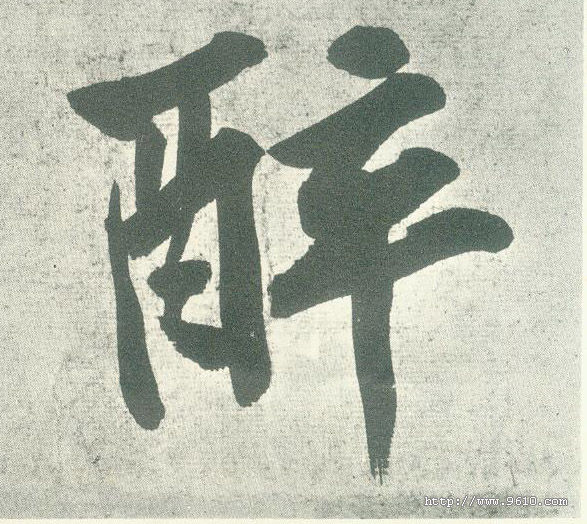 醉
http://www.9610.com